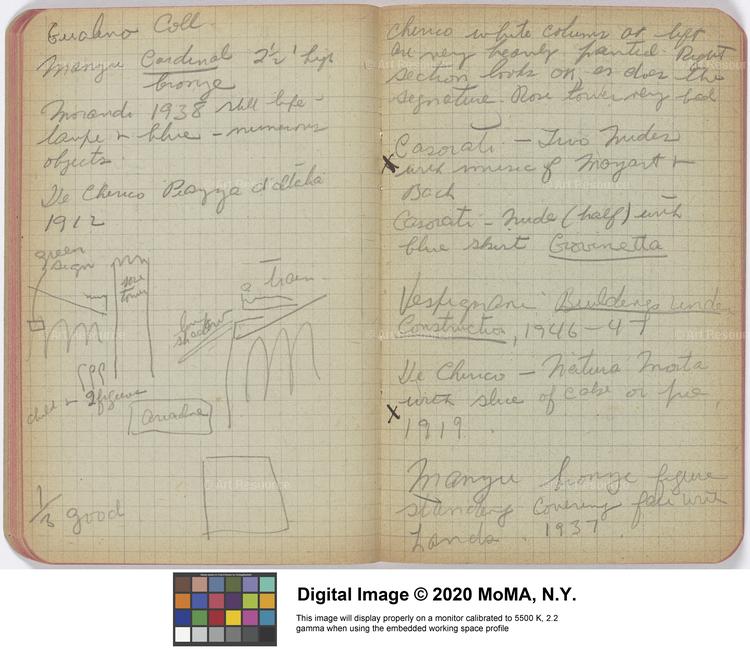 Gualino Coll.
Manzu Cardinal 2½' high
bronze
Morandi 1938 still life -
lamp & blue - numerous
objects.
De Chirico Piazza d'Italia
1912
green
sign
rose
tower
a train
long
shadow
child & 2 figures
Ariadne
1/3 good
Chirico white column at left
are very heavily painted. Right
section looks OK, as does the
signature. Rose tower very bad
x Casorati - Two Nudes
with music of Mozart &
Bach
Casorati - Nude (half) with
blue skirt Giovinetta
Vespignani Buildings under
Construction, 1946-47
De Chirico - Natura Morta
x with slice of cake or pie,
1919.
Manzu bronze figure
standing covering face with
hands. 1937
© Art Resource
Digital Image © 2020 MoMA, N.Y.
This image will display properly on a monitor calibrated to 5500 K, 2.2
gamma when using the embedded working space profile